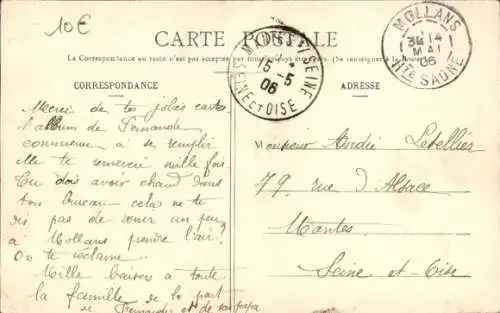 10€
CARTE POSTALE
La Correspondance au recto n'est pas acceptée par tous les pays étrangers. (Se renseigner à la Poste)
CORRESPONDANCE
ADRESSE
MANTES S/ SEINE
15 -5
06
SEINE ET OISE
MOLLANS
3E 14
MAI
06
HTE SAONE
Merci de ta jolie carte
l'album de Fernande
commence à se remplir
Elle te remercie mille fois
Tu dois avoir chaud dans
ton bureau cela ne te
dis pas de venir un peu
à Mollans prendre l'air.
On te réclame.
Mille baisers à toute
la famille de la part
de Fernande et de son papa
Monsieur André Lebellier
79 rue d'Alsace
Mantes
Seine et Oise